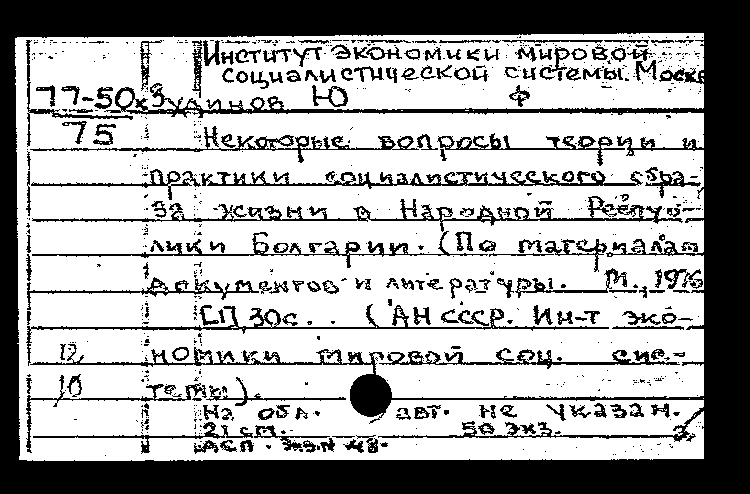 Институт экономики мировой
социалистической системы. Москв
77-50к Зудинов Ю Ф
75
Некоторые вопросы теории и
практики социалистического обра-
за жизни в Народной Респуб-
лики Болгарии. (По материалам
документов и литературы. М., 1976
СП, 30с. . (АН СССР. Ин-т эко-
12, номики мировой соц. сис-
10 темы).
На обл. авт. не указан.
21 см. 50 экз.
АСП. Экз. N 48.